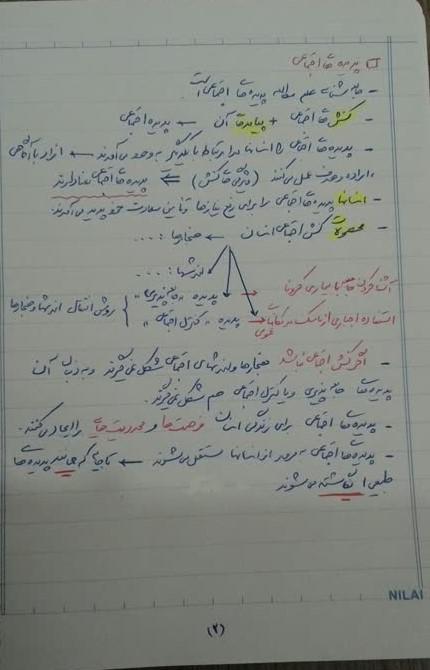 □ پدیده های اجتماعی
- جامعه شناسی علم مطالعه پدیده های اجتماعی است.
- کنش های اجتماعی + پیامدهای آن ← پدیده اجتماعی
- پدیده های اجتماعی را انسانها در ارتباط با یکدیگر به وجود می آورند ← افراد با آگاهی
و اراده دست به عمل می زنند (ویژگی های کنش) ⇐ پدیده های اجتماعی معنا دارند
- انسانها پدیده های اجتماعی را برای رفع نیازها و تامین سعادت خود پدید می آورند.
- محصولات کنش اجتماعی انسان ← هنجارها: ...
ارزشها: ...
آشنا کردن با بیماری کرونا → پدیده "جامعه پذیری"
استفاده اجباری از ماسک در مکانهای عمومی → پدیده "کنترل اجتماعی"
} روش انتقال ارزشها و هنجارها
- اگر کنش اجتماعی نباشد هنجارها و ارزشهای اجتماعی شکل نمی گیرند و به دنبال آن
پدیده های جامعه پذیری و یا کنترل اجتماعی هم شکل نمی گیرند.
- پدیده های اجتماعی برای زندگی انسان فرصت ها و محدودیت هایی را ایجاد می کنند.
- پدیده های اجتماعی به مرور از انسانها مستقل می شوند ← تا جایی که همانند پدیده های
طبیعی انگاشته می شوند
NILAI
(۲)